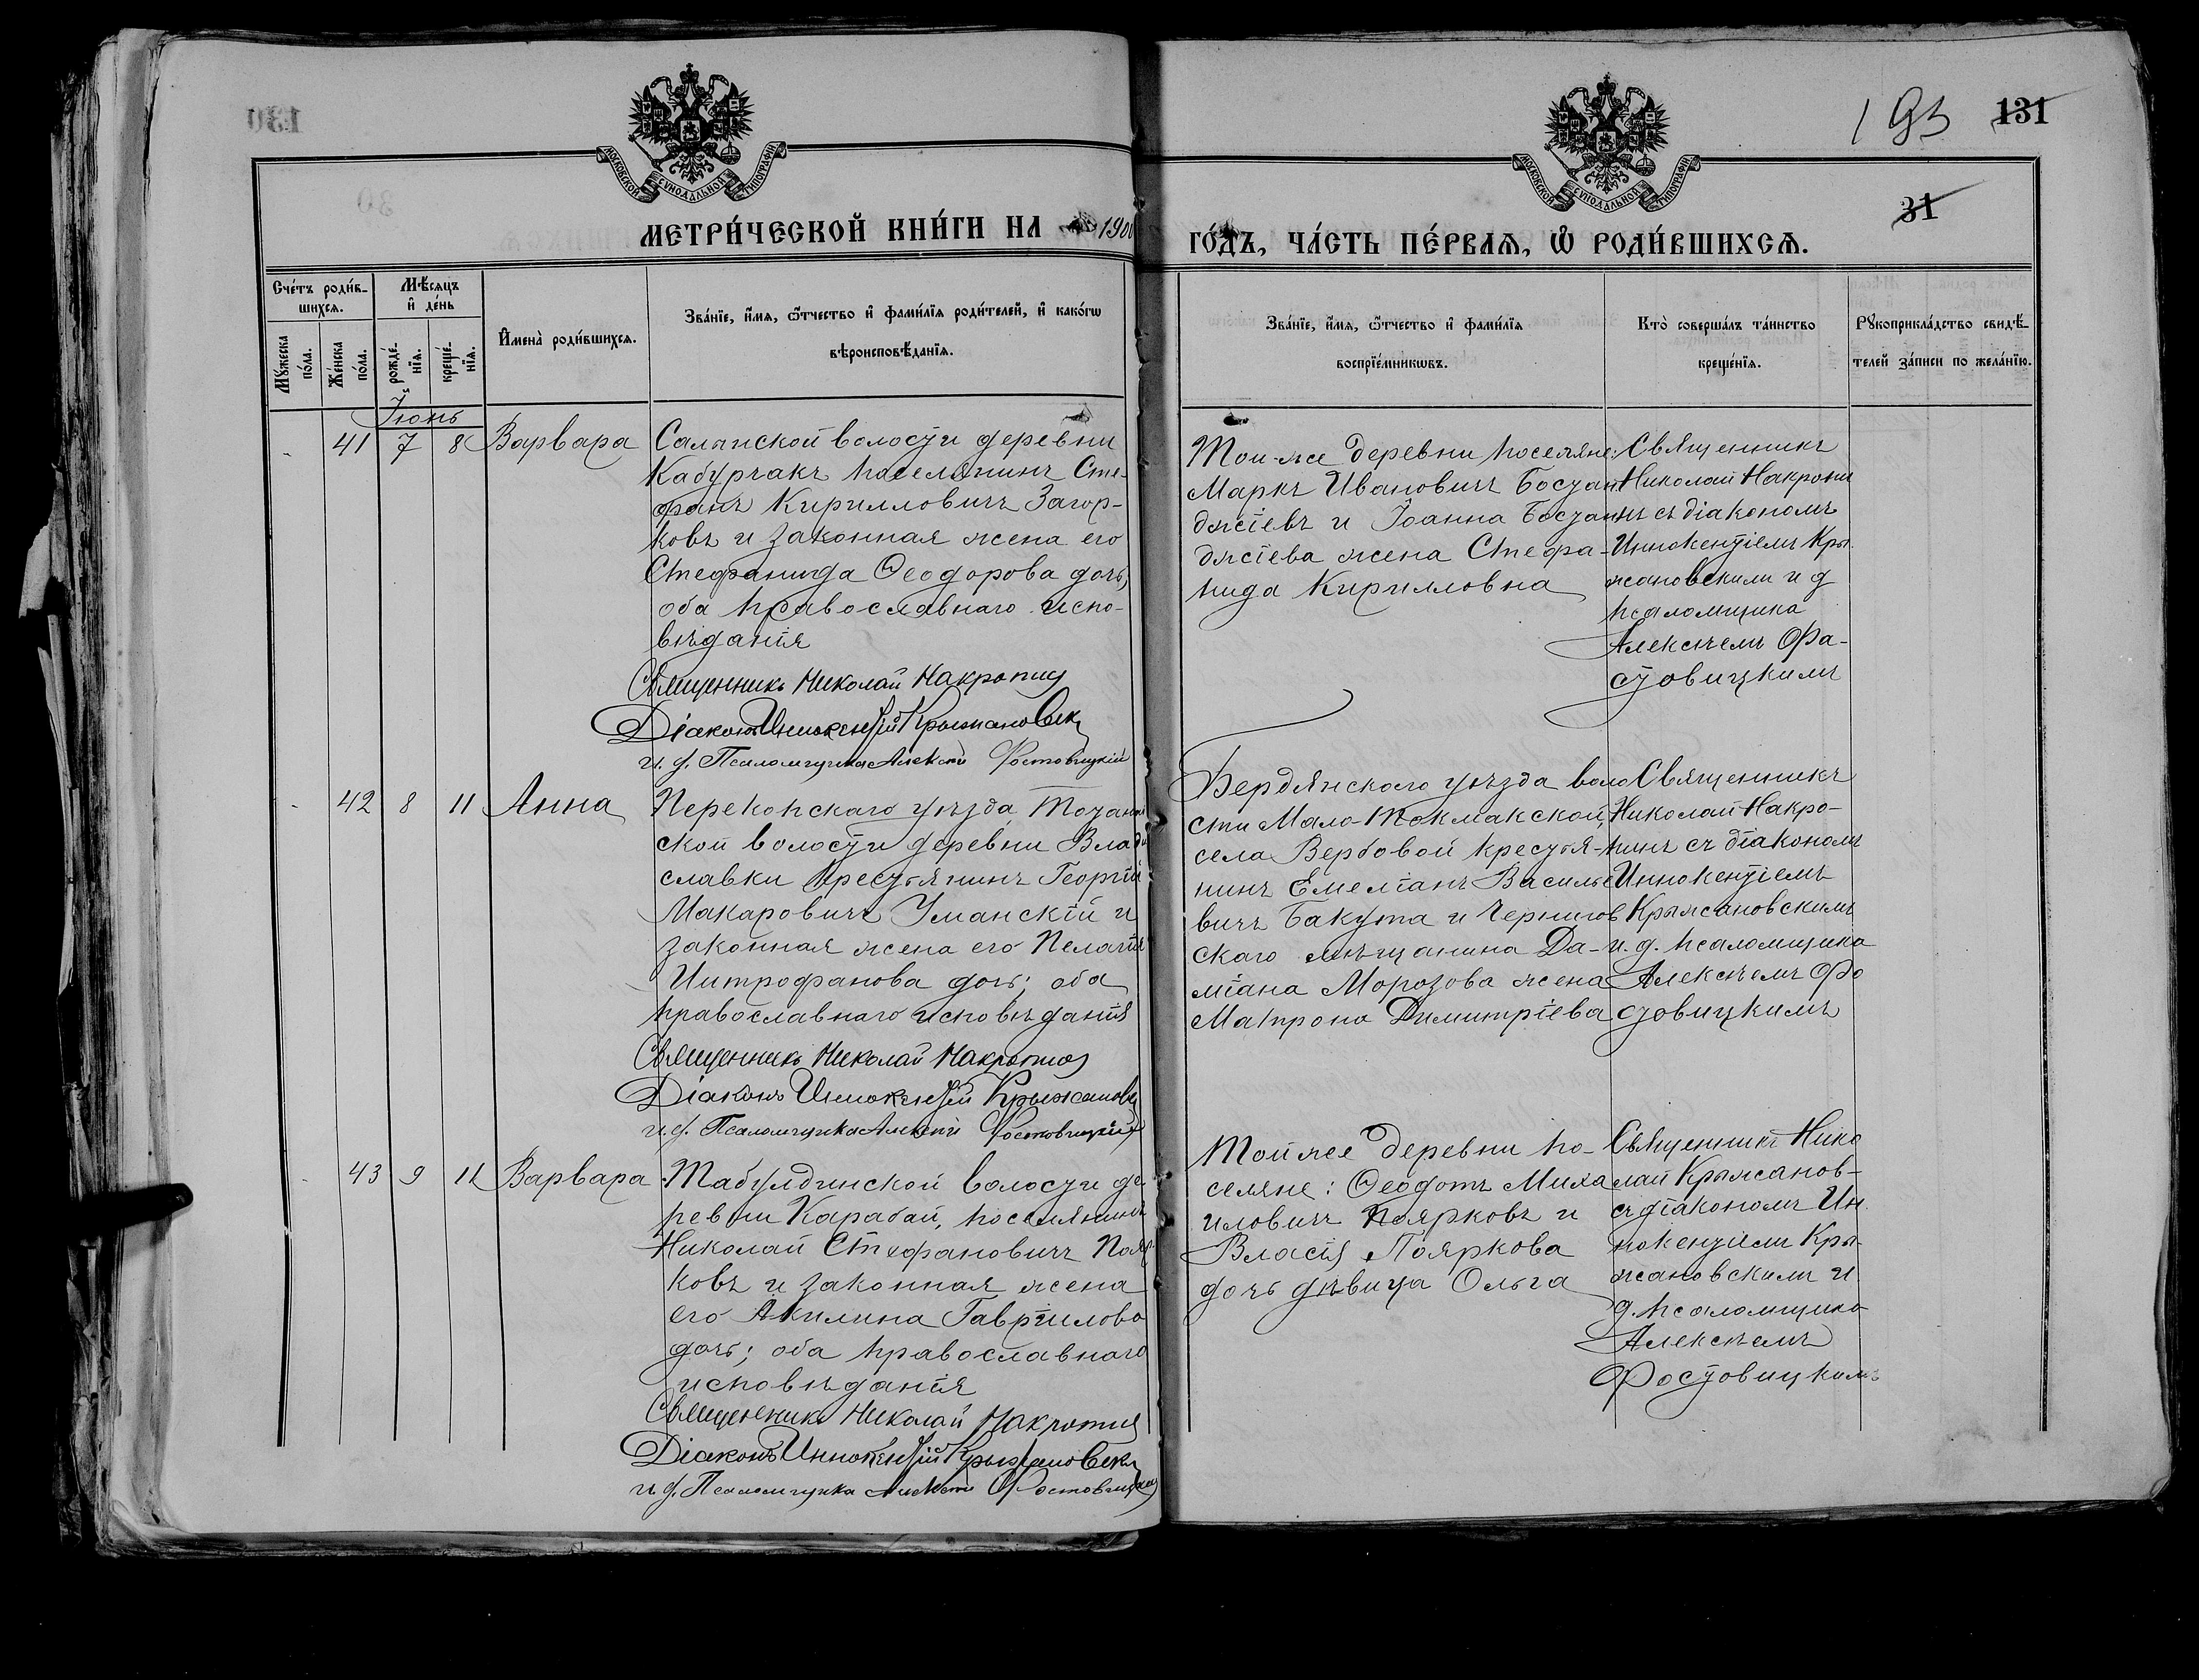 193 131
МОСКОВСКОЙ СѴНОДАЛЬНОЙ ТИПОГРАФІИ
МОСКОВСКОЙ СѴНОДАЛЬНОЙ ТИПОГРАФІИ
31
МЕТРИ́ЧЕСКОЙ КНИ́ГИ НА 1900
ГО́ДЪ, ЧА́СТЬ ПЕ́РВАѦ, Ѽ РОДИ́ВШИХСѦ.
Сче́тъ роди́вшихсѧ.
Мꙋ́жеска по́ла.
Же́нска по́ла.
Мѣ́сяцъ и҆ де́нь
рожде́нїѧ.
креще́нїѧ.
И҆мена̀ роди́вшихсѧ.
Зва́нїе, и҆́мѧ, ѻ҆́тчество и҆ фами́лїѧ роди́телей, и҆ како́гѡ
вѣроисповѣ́данїѧ.
Зва́нїе, и҆́мѧ, ѻ҆́тчество и҆ фами́лїѧ
воспрїе́мникѡвъ.
Кто̀ соверша́лъ та́инство
креще́нїѧ.
Рꙋкоприкла́дство свидѣ́-
телей за́писи по жела́нїю.
Іюнь
41 7 8 Варвара
Салынской волости деревни
Кабурчакъ поселянинъ Сте-
фанъ Кирилловичъ Загор-
ковъ и законная жена его
Стефанида Ѳеодорова дочь,
оба православнаго испо-
вѣданія
Священникъ Николай Накропин
Діаконъ Иннокентій Крыжановск
и. д. Псаломщика Алексѣй Фостовицкій
Той-же деревни поселяне:
Маркъ Ивановичъ Бостан-
джіевъ и Іоанна Бостан-
джіева жена Стефа-
нида Кирилловна
Священникъ
Николай Накропи
нъ съ діакономъ
Иннокентіемъ Кры
жановскимъ и д
псаломщика
Алексѣемъ Фа-
стовицкимъ
42 8 11 Анна
Перекопскаго уѣзда
ской волости деревни Влади
славки крестьянинъ Георгій
Макаровичъ Уманскій и
законная жена его Пелагія
Митрофанова дочь; оба
православнаго исповѣданія
Священникъ Николай Накропин
Діаконъ Иннокентій Крыжановс
и. д. Псаломщика Алексѣй Фостовицкій
Бердянскаго уѣзда воло
сти Мало-Токмакской,
села Вербовой крестья-
нинъ Емеліанъ Василье
вичъ Бакута и Чернигов
скаго мѣщанина Да-
міана Морозова жена
Матрона Димитріева
Священникъ
Николай Накро-
пинъ съ діакономъ
Иннокентіемъ
Крыжановскимъ
и. д. псаломщика
Алексѣемъ Фо
стовицкимъ
43 9 11 Варвара
Табулдинской волости де
ревни Карабай, поселянинъ
Николай Стефановичъ Пояр
ковъ и законная жена
его Акилина Гавріилова
дочь; оба православнаго
исповѣданія
Священникъ Николай Накропин
Діаконъ Иннокентій Крыжановск
и. д. Псаломщика Алексѣй Фостовицкій
Той же деревни по-
селяне: Ѳеодотъ Миха
иловичъ Поярковъ и
Власія Пояркова
дочь дѣвица Ольга
Священникъ Нико
лай Крыжанов-
съ діакономъ Ин
нокентіемъ Кры-
жановскимъ и
д. псаломщика
Алексѣемъ
Фостовицкимъ